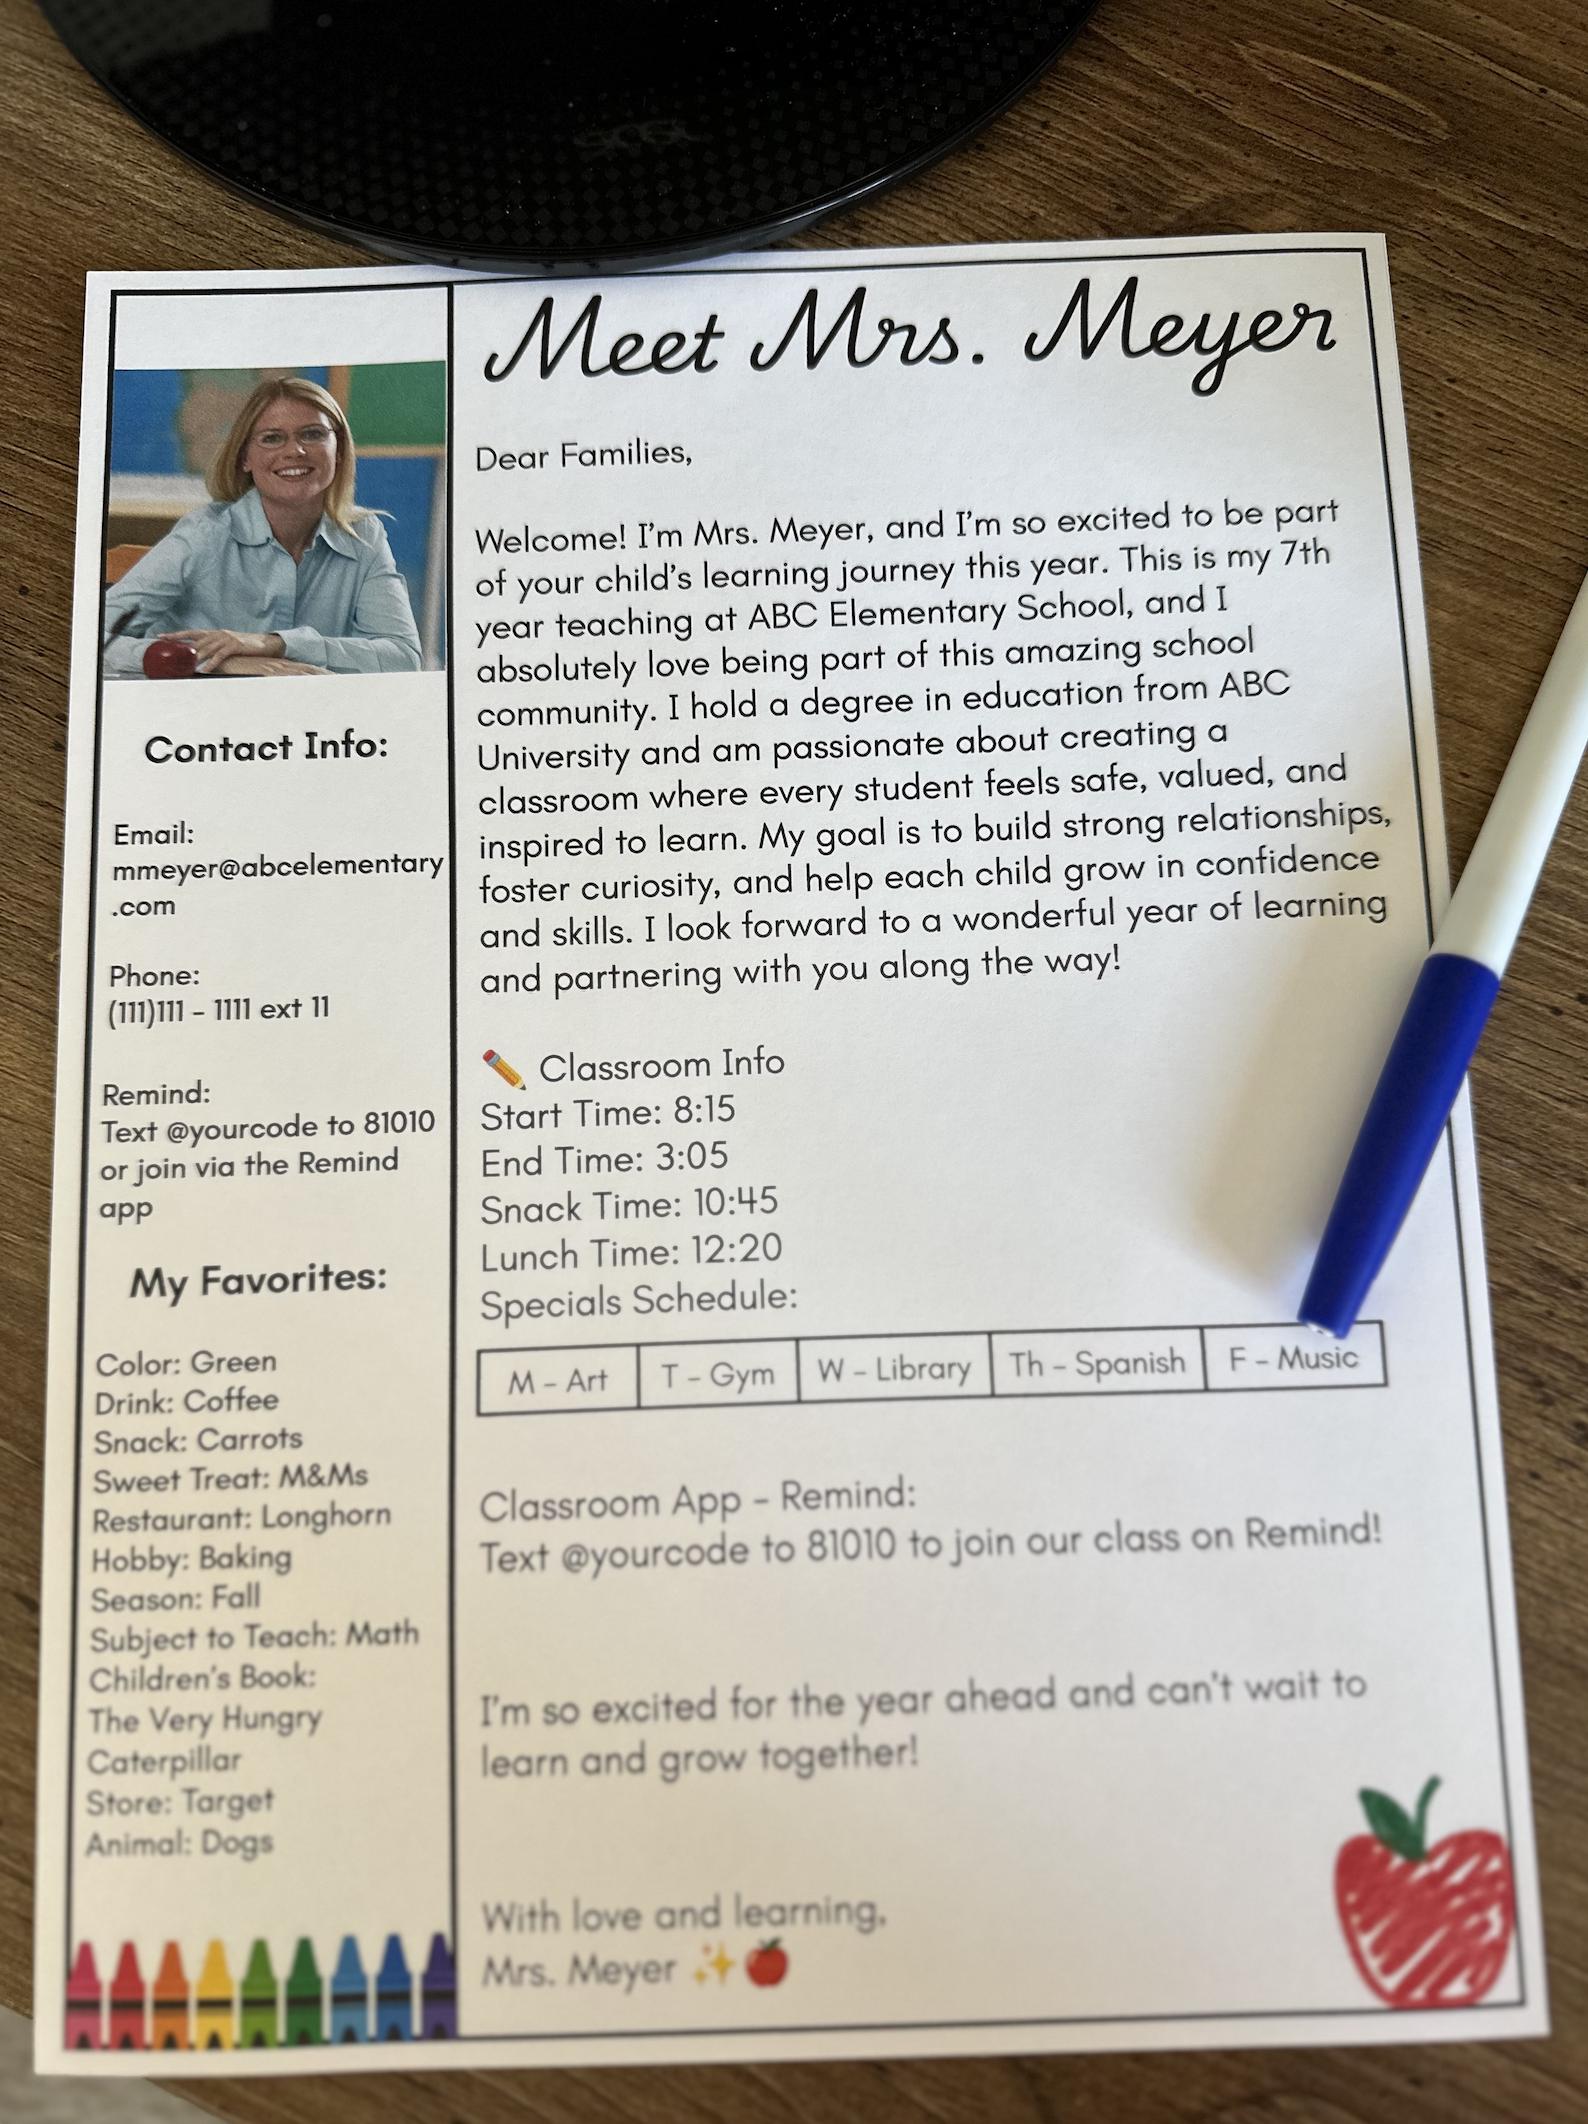 Meet Mrs. Meyer
Contact Info:
Email:
mmeyer@abcelementary
.com
Phone:
(111)111 - 1111 ext 11
Remind:
Text @yourcode to 81010
or join via the Remind
app
My Favorites:
Color: Green
Drink: Coffee
Snack: Carrots
Sweet Treat: M&Ms
Restaurant: Longhorn
Hobby: Baking
Season: Fall
Subject to Teach: Math
Children's Book:
The Very Hungry
Caterpillar
Store: Target
Animal: Dogs
Dear Families,
Welcome! I'm Mrs. Meyer, and I'm so excited to be part
of your child's learning journey this year. This is my 7th
year teaching at ABC Elementary School, and I
absolutely love being part of this amazing school
community. I hold a degree in education from ABC
University and am passionate about creating a
classroom where every student feels safe, valued, and
inspired to learn. My goal is to build strong relationships,
foster curiosity, and help each child grow in confidence
and skills. I look forward to a wonderful year of learning
and partnering with you along the way!
✏️ Classroom Info
Start Time: 8:15
End Time: 3:05
Snack Time: 10:45
Lunch Time: 12:20
Specials Schedule:
M - Art T - Gym W - Library Th - Spanish F - Music
Classroom App - Remind:
Text @yourcode to 81010 to join our class on Remind!
I'm so excited for the year ahead and can't wait to
learn and grow together!
With love and learning,
Mrs. Meyer ✨🍎